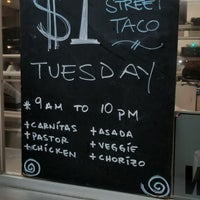 $1 STREET
TACO
TUESDAY
* 9AM TO 10 PM
+CARNITAS +ASADA
+PASTOR +VEGGIE
+CHICKEN +CHORIZO